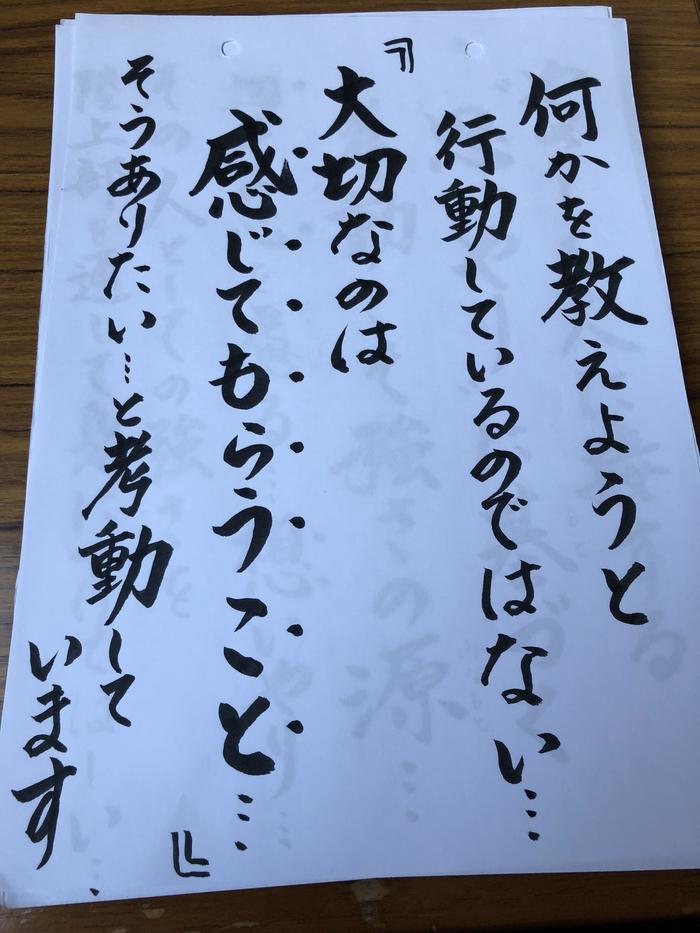 何かを教えようと
行動しているのではない…
『大切なのは
感じてもらうこと…』
そうありたい…と考動して
います.